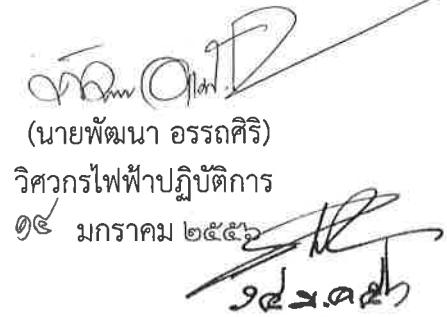 (นายพัฒนา อรรถศิริ)
วิศวกรไฟฟ้าปฏิบัติการ
๑๔ มกราคม ๒๕๕๖
๑๔ ม.ค. ๕๖